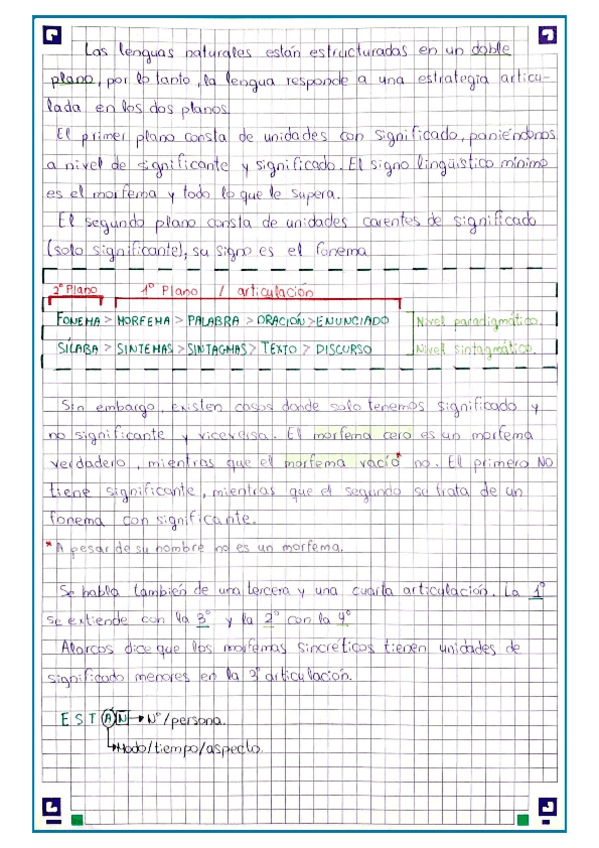 Las lenguas naturales están estructuradas en un doble
plano, por lo tanto, la lengua responde a una estrategia articu-
lada en los dos planos.
El primer plano consta de unidades con significado, poniéndonos
a nivel de significante y significado. El signo lingüístico mínimo
es el morfema y todo lo que le supera.
El segundo plano consta de unidades carentes de significado
(solo significante), su signo es el fonema
2º Plano 1º Plano / articulación
FONEMA > MORFEMA > PALABRA > ORACIÓN > ENUNCIADO Nivel paradigmático.
SÍLABA > SINTEMAS > SINTAGMAS > TEXTO > DISCURSO Nivel sintagmático.
Sin embargo, existen casos donde solo tenemos significado y
no significante y viceversa. El morfema cero es un morfema
verdadero, mientras que el morfema vacío* no. El primero NO
tiene significante, mientras que el segundo se trata de un
fonema con significante.
*A pesar de su nombre no es un morfema.
Se habla también de una tercera y una cuarta articulación. La 1º
se extiende con la 3º y la 2º con la 4º
Alarcos dice que los morfemas sincréticos tienen unidades de
significado menores en la 3º articulación.
E S T A N → Nº/persona.
Modo/tiempo/aspecto.